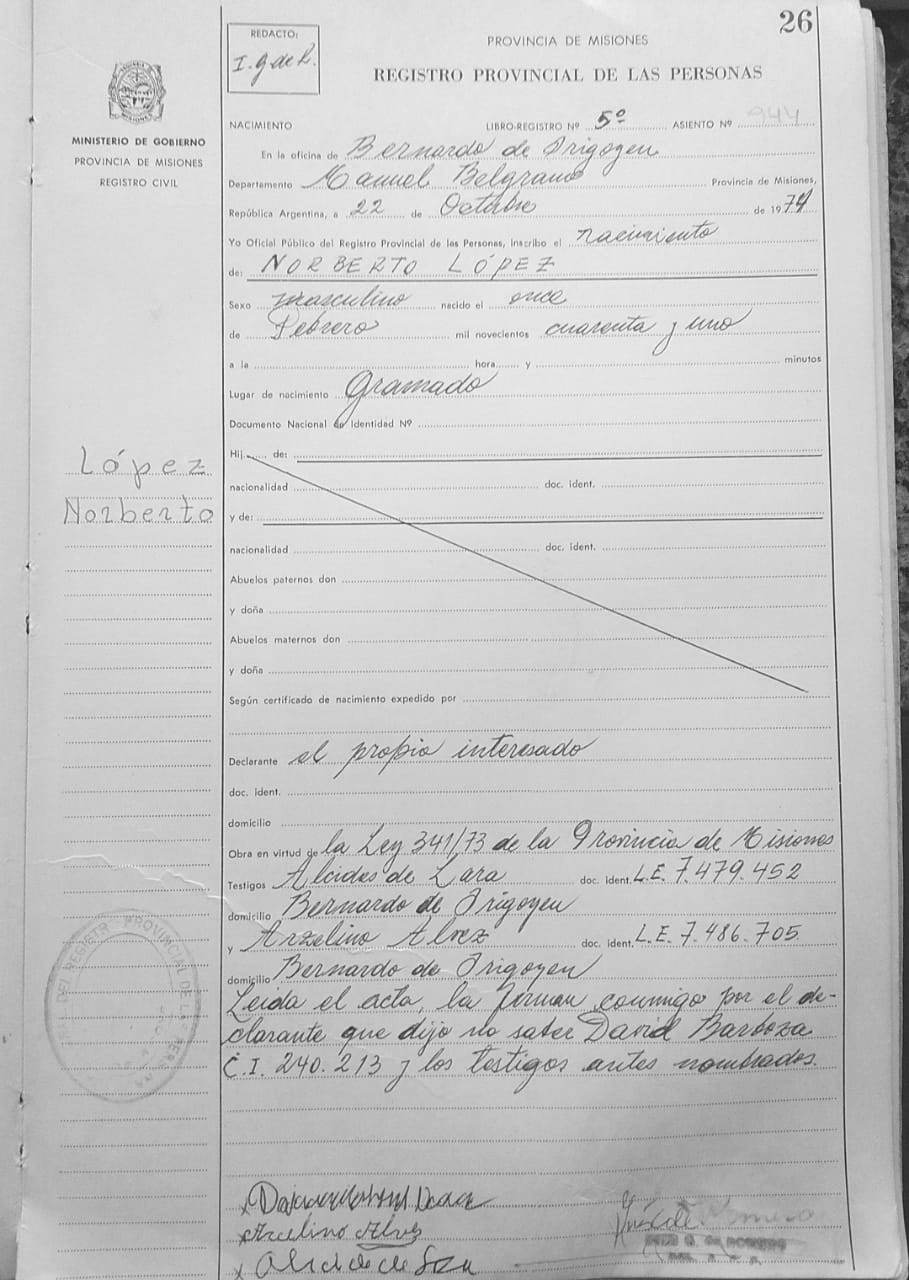 26
REDACTO:
I. g de R.
PROVINCIA DE MISIONES
REGISTRO PROVINCIAL DE LAS PERSONAS
MINISTERIO DE GOBIERNO
PROVINCIA DE MISIONES
REGISTRO CIVIL
NACIMIENTO LIBRO-REGISTRO Nº 5º ASIENTO Nº 944
En la oficina de Bernardo de Irigoyen
Departamento Manuel Belgrano Provincia de Misiones,
República Argentina, a 22 de Octubre de 1974
Yo Oficial Público del Registro Provincial de las Personas, inscribo el nacimiento
de: NORBERTO LÓPEZ
Sexo masculino nacido el once
de Febrero mil novecientos cuarenta y uno
a la hora y minutos
Lugar de nacimiento Gramado
Documento Nacional de Identidad Nº
Hij de:
López
nacionalidad doc. ident.
Norberto
y de:
nacionalidad doc. ident.
Abuelos paternos don
y doña
Abuelos maternos don
y doña
Según certificado de nacimiento expedido por
Declarante el propio interesado
doc. ident.
domicilio
Obra en virtud de la Ley 341/73 de la Provincia de Misiones
Testigos Alcides de Lara doc. ident. L.E. 7.479.452
domicilio Bernardo de Irigoyen
y Arzelino Alvez doc. ident. L.E. 7.486.705
domicilio Bernardo de Irigoyen
Leída el acta, la firman conmigo por el de-
clarante que dijo no saber David Barboza
C.I. 240.213 y los testigos antes nombrados.
REGISTR PROVINCIAL DE L
Arcelino Alvez